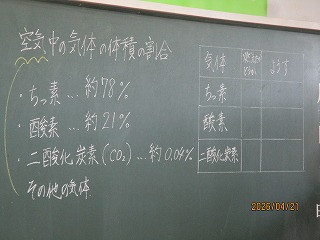 空気中の気体の体積の割合
・ちっ素…約78%
・酸素…約21%
・二酸化炭素(CO₂)…約0.04%
その他の気体
気体
ようす
ちっ素
酸素
二酸化炭素
2026/04/21